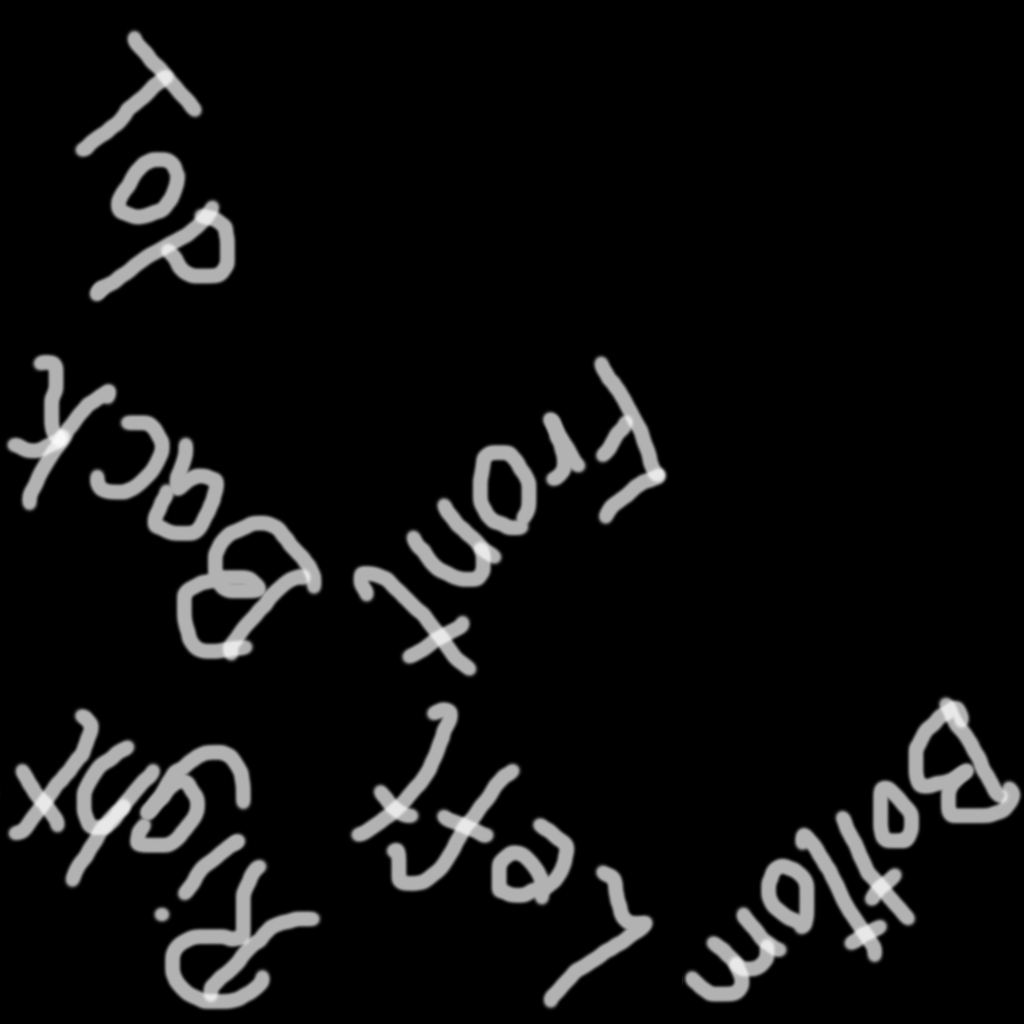 Top
Back
Front
Right
Left
Bottom